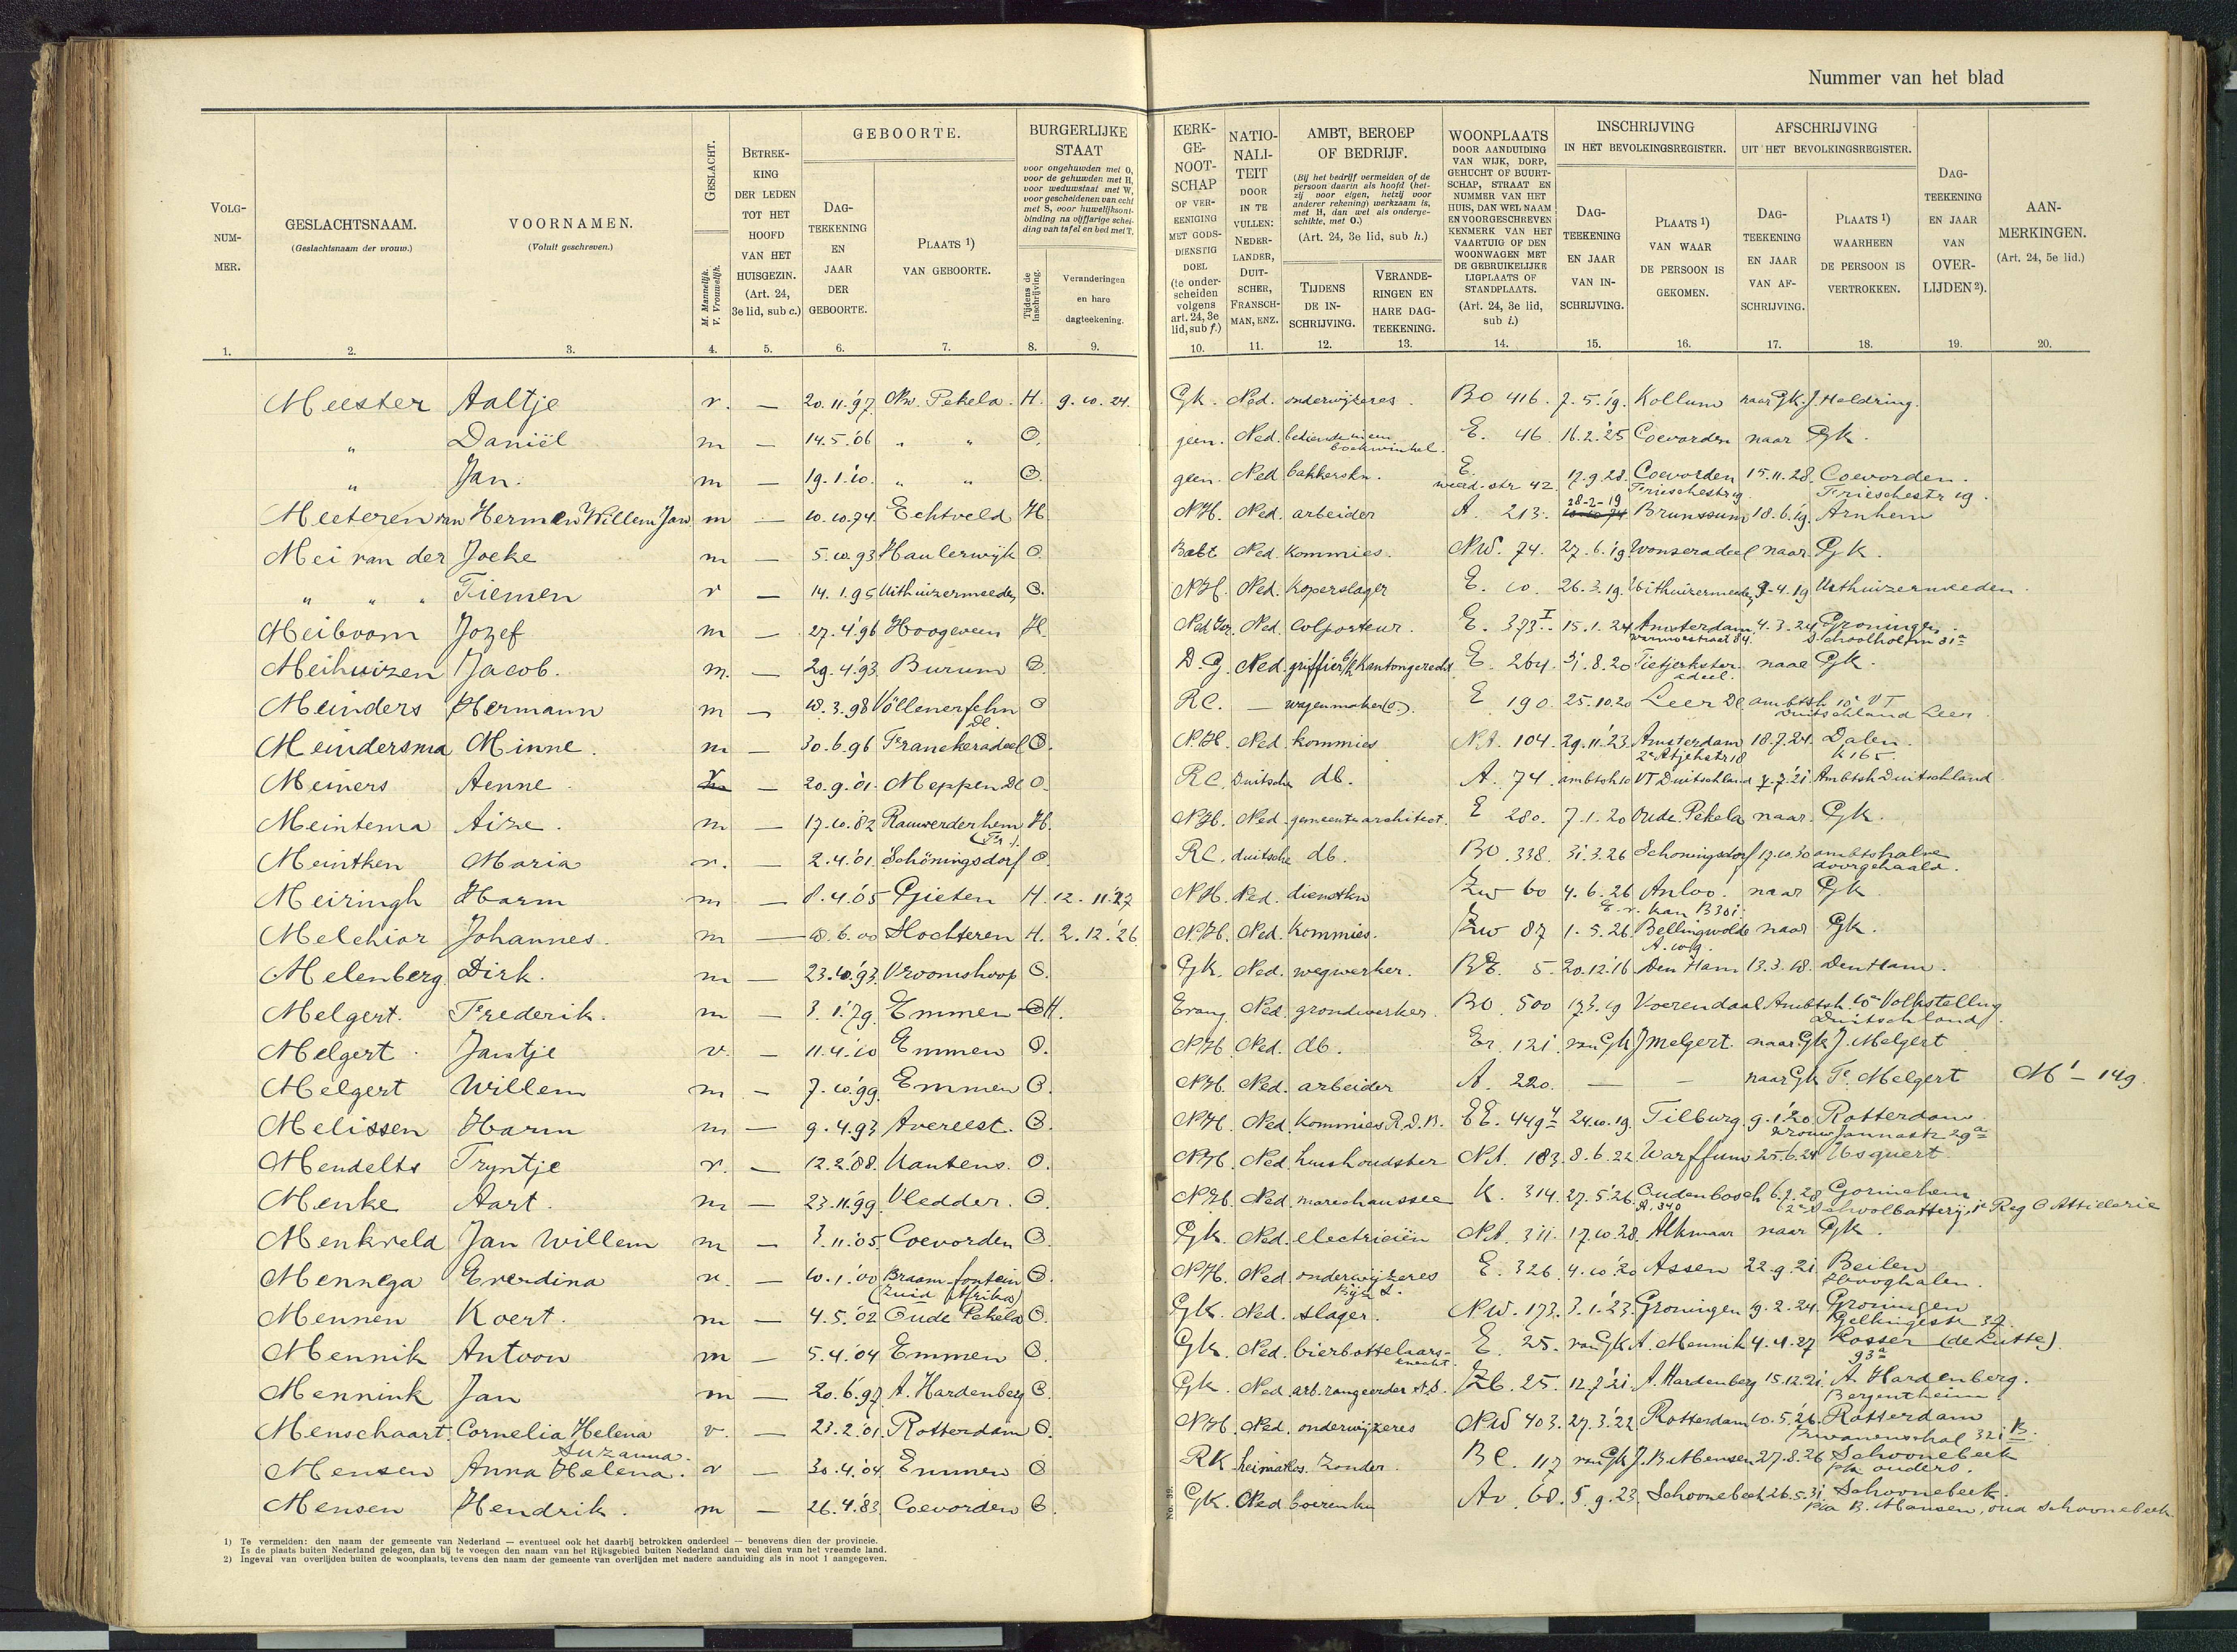 Nummer van het blad
VOLG-NUM-MER.
GESLACHTSNAAM.
(Geslachtsnaam der vrouw.)
VOORNAMEN.
(Voluit geschreven.)
GESLACHT.
M. Mannelijk.
V. Vrouwelijk.
BETREK-KING DER LEDEN TOT HET HOOFD VAN HET HUISGEZIN. (Art. 24, 3e lid, sub c.)
GEBOORTE.
DAG-TEEKENING EN JAAR DER GEBOORTE.
PLAATS 1) VAN GEBOORTE.
BURGERLIJKE STAAT
voor ongehuwden met O, voor de gehuwden met H, voor weduwstaat met W, voor gescheidenen van echt met S, voor huwelijksontbinding na vijfjarige scheiding van tafel en bed met T.
Tijdens de inschrijving.
Veranderingen en hare dagteekening.
KERK-GE-NOOT-SCHAP OF VER-EENIGING MET GODS-DIENSTIG DOEL (te onderscheiden volgens art. 24, 3e lid, sub f.)
NATIO-NALI-TEIT DOOR IN TE VULLEN: NEDER-LANDER, DUIT-SCHER, FRANSCH-MAN, ENZ.
AMBT, BEROEP OF BEDRIJF.
(Bij het bedrijf vermelden of de persoon daarin als hoofd (hetzij voor eigen, hetzij voor anderer rekening) werkzaam is, met H, dan wel als ondergeschikte, met O.)
(Art. 24, 3e lid, sub h.)
TIJDENS DE IN-SCHRIJVING.
VERANDE-RINGEN EN HARE DAG-TEEKENING.
WOONPLAATS DOOR AANDUIDING VAN WIJK, DORP, GEHUCHT OF BUURT-SCHAP, STRAAT EN NUMMER VAN HET HUIS, DAN WEL NAAM EN VOORGESCHREVEN KENMERK VAN HET VAARTUIG OF DEN WOONWAGEN MET DE GEBRUIKELIJKE LIGPLAATS OF STANDPLAATS.
(Art. 24, 3e lid, sub i.)
INSCHRIJVING IN HET BEVOLKINGSREGISTER.
DAG-TEEKENING EN JAAR VAN IN-SCHRIJVING.
PLAATS 1) VAN WAAR DE PERSOON IS GEKOMEN.
AFSCHRIJVING UIT HET BEVOLKINGSREGISTER.
DAG-TEEKENING EN JAAR VAN AF-SCHRIJVING.
PLAATS 1) WAARHEEN DE PERSOON IS VERTROKKEN.
DAG-TEEKENING EN JAAR VAN OVER-LIJDEN 2).
AAN-MERKINGEN.
(Art. 24, 5e lid.)
1. 2. 3. 4. 5. 6. 7. 8. 9. 10. 11. 12. 13. 14. 15. 16. 17. 18. 19. 20.
Meester Aaltje v. — 20.11.'97 Nw. Pekela. H. 9.10.24. Gk. Ned. onderwijzeres. BO 416. 7.5.'19. Kollum naar Gk. J. Heldring.
" Daniël m — 14.5.'06 " " O. geen. Ned. bediende in een boekwinkel. E. 46 16.2.'25 Coevorden naar Gk.
" Jan. m — 19.1.'10. " " O. geen. Ned bakkerskn. E. weerd. str 42. 17.9.28. Coevorden Frieschestr 19 15.11.28. Coevorden. Frieschestr 19.
Meeteren van Hermen Willem Jan m — 10.10.74. Echtveld H NH. Ned. arbeider A. 213. 28-2-19 Brunssum 18.6.'19. Arnhem
Mei van der Joeke m — 5.10.93 Haulerwijk O. Babt Ned. kommies. NW. 74. 27.6.'19 Wonseradeel naar Gk.
" " " Tiemen v — 14.1.95 Uithuizermeeden O. NH. Ned. koperslager E. 10. 26.3.19. Uithuizermeeden 9-4.19 Uithuizermeeden.
Meiboom Jozef m — 27.4.'96 Hoogeveen H. Ned Isr. Ned. Colporteur. E. 373 I. 15.1.24 Amsterdam Warmoestraat 84. 4.3.24 Groningen. Schoolholm 31a
Meihuizen Jacob. m. — 29.4.'93. Burum O. D.G. Ned. griffier b/h Kantongerecht E. 264. 31.8.20 Tietjerkster adeel. naar Gk.
Meinders Hermann m — 10.3.98 Völlenerfehn Dl. O RC. — wagenmaker (O). E 190. 25.10.20 Leer Dl ambtsh. 10e VT Duitschland Leer.
Meindersma Minne. m — 30.6.96 Franekeradeel O. NH. Ned kommies NA. 104. 29.11.'23. Amsterdam 2e Atjehstr 18 18.7.24. Dalen. K 165.
Meiners Aenne. v — 20.9.'01. Meppen Dl O. RC. Duitsche db. A. 74. ambtsh 10 VT Duitschland 7.7.'21 Ambtsh Duitschland
Meintema Aize. m — 17.10.'82 Rauwerderhem (Fr). H. NH. Ned. gemeente architect. E 280. 7.1.20 Oude Pekela naar. Gk.
Meintken Maria v. — 2.4.'01. Schöningsdorf O RC. duitsche db. BO 338. 31.3.26 Schoningsdorf 17.10.30 ambtshalve doorgehaald.
Meiringh Harm m — 8.4.'05 Gieten H. 12.11.'27 NH. Ned. dienstkn Zw 60 4.6.26 Anloo. E.v. kan B 301. naar Gk
Melchior Johannes. m — 10.6.00 Slochteren H. 2.12.'26 NH. Ned. kommies. Zw 87 1.5.26. Bellingwolde A. 109. naar Gk.
Melenberg. Dirk. m — 23.10.'93. Vroomshoop O. Gk. Ned. wegwerker. BE. 5. 20.12.'16 Den Ham 13.3.18. Den Ham.
Melgert. Frederik. m — 3.1.'79. Emmen H. Evang. Ned. grondwerker. BO. 500 17.3.19 Voerendaal Ambtsh 10e Volkstelling Duitschland.
Melgert. Jantje v. — 11.4.'10 Emmen O. NH. Ned. db. Er. 121. van Gk J Melgert. naar Gk J. Melgert
Melgert Willem m — 7.10.'99. Emmen O. NH. Ned. arbeider A. 220. — — naar Gk Fr. Melgert M' — 149.
Melissen Harm m — 9.4.93 Avereest. O. NH. Ned. kommies R.D.B. EE. 449 24.10.19. Tilburg 9.1.'20 Rotterdam Vrouw Jannastr 29a
Mendelts Tryntje v. — 12.2.'88. Kantens. O. NH. Ned. huishoudster NA. 183. 8.6.22. Warffum 25.6.24 Usquert
Menke Aart. m — 23.11.'99. Vledder. O. NH. Ned. marechaussee K. 314. 27.5.'26. Oudenbosch A. 340 6.2.28 Gorinchem (2e Schoolbatterij, 1e Reg O Attillerie
Menkveld Jan Willem m — 3.11.'05. Coevorden O. Gk. Ned. electriciën NA. 311. 17.10.28. Alkmaar naar Gk.
Mennega Everdina v. — 10.1.'00 Braam-fontein (Zuid Afrika) O. NH. Ned. onderwijzeres Bijz. S. E. 326. 4.10.'20 Assen 22.9.21. Beilen Hooghalen.
Mennen Koert. m — 4.5.'02 Oude Pekela O. Gk. Ned. slager. NW. 173. 3.1.'23. Groningen 19.2.24. Groningen Gelkingestr 37.
Mennik Antoon m — 5.4.'04 Emmen O. Gk. Ned. bierbottelaars-knecht. E. 25. van Gk A. Mennik 4.4.27 Losser (de Lutte). 93a
Mennink Jan m — 20.6.'97 A. Hardenberg O. Gk. Ned arb. rangeerder N.S. Zb. 25. 12.7.'21. A. Hardenberg 15.12.21. A. Hardenberg. Bergentheim
Menschaart. Cornelia Helena Suzanna. v. — 23.2.'01. Rotterdam O. NH. Ned. onderwijzeres NW 403. 27.3.'22 Rotterdam 10.5.'26. Rotterdam Zwanenschal 321 B.
Mensen Anna Helena. v — 30.4.'04 Emmen O RK. heimatlos. Zonder. BC. 117 van Gk J. B. Mensen 27.8.26 Schoonebeek p/a ouders.
Mensen Hendrik. m — 26.4.'83. Coevorden O. Gk. Ned boerenkn Av. 68. 5.9.23. Schoonebeek 26.5.31. Schoonebeek. p/a B. Mansen, oud Schoonebeek
No. 39.
1) Te vermelden: den naam der gemeente van Nederland — eventueel ook het daarbij betrokken onderdeel — benevens dien der provincie.
Is de plaats buiten Nederland gelegen, dan bij te voegen den naam van het Rijksgebied buiten Nederland dan wel dien van het vreemde land.
2) Ingeval van overlijden buiten de woonplaats, tevens den naam der gemeente van overlijden met nadere aanduiding als in noot 1 aangegeven.